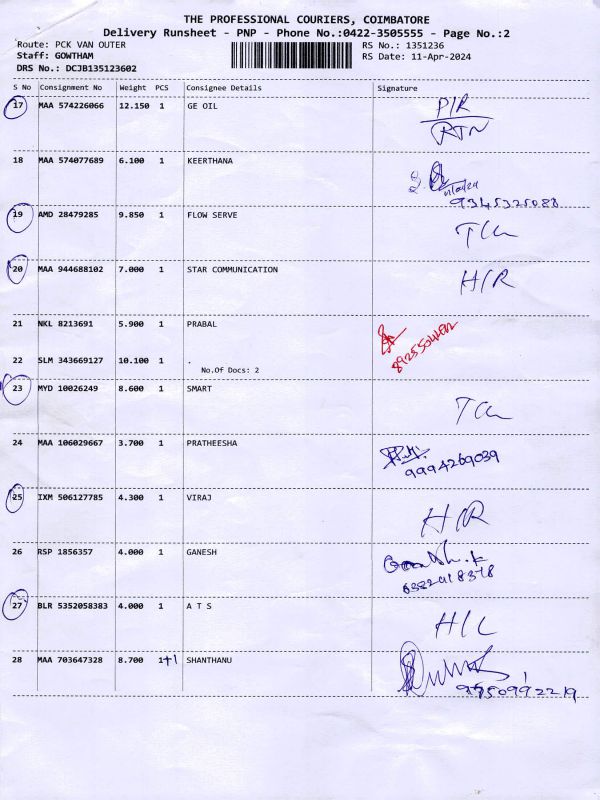 THE PROFESSIONAL COURIERS, COIMBATORE
Delivery Runsheet - PNP - Phone No.:0422-3505555 - Page No.:2
Route: PCK VAN OUTER RS No.: 1351236
Staff: GOWTHAM RS Date: 11-Apr-2024
DRS No.: DCJB135123602
S No Consignment No Weight PCS Consignee Details Signature
17 MAA 574226066 12.150 1 GE OIL P/R
RTN
18 MAA 574077689 6.100 1 KEERTHANA
9345325088
19 AMD 28479285 9.850 1 FLOW SERVE
20 MAA 944688102 7.000 1 STAR COMMUNICATION H/R
21 NKL 8213691 5.900 1 PRABAL
22 SLM 343669127 10.100 1 .
No.Of Docs: 2
23 MYD 10026249 8.600 1 SMART
24 MAA 106029667 3.700 1 PRATHEESHA
9994269039
25 IXM 506127785 4.300 1 VIRAJ H/R
26 RSP 1856357 4.000 1 GANESH
27 BLR 5352058383 4.000 1 A T S H/L
28 MAA 703647328 8.700 1+1 SHANTHANU